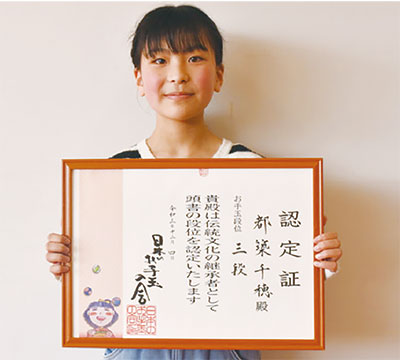 認定証
都築千穂殿
お手玉段位
三段
貴殿は伝統文化の継承者として
頭書の段位を認定いたします
日本お手玉の会